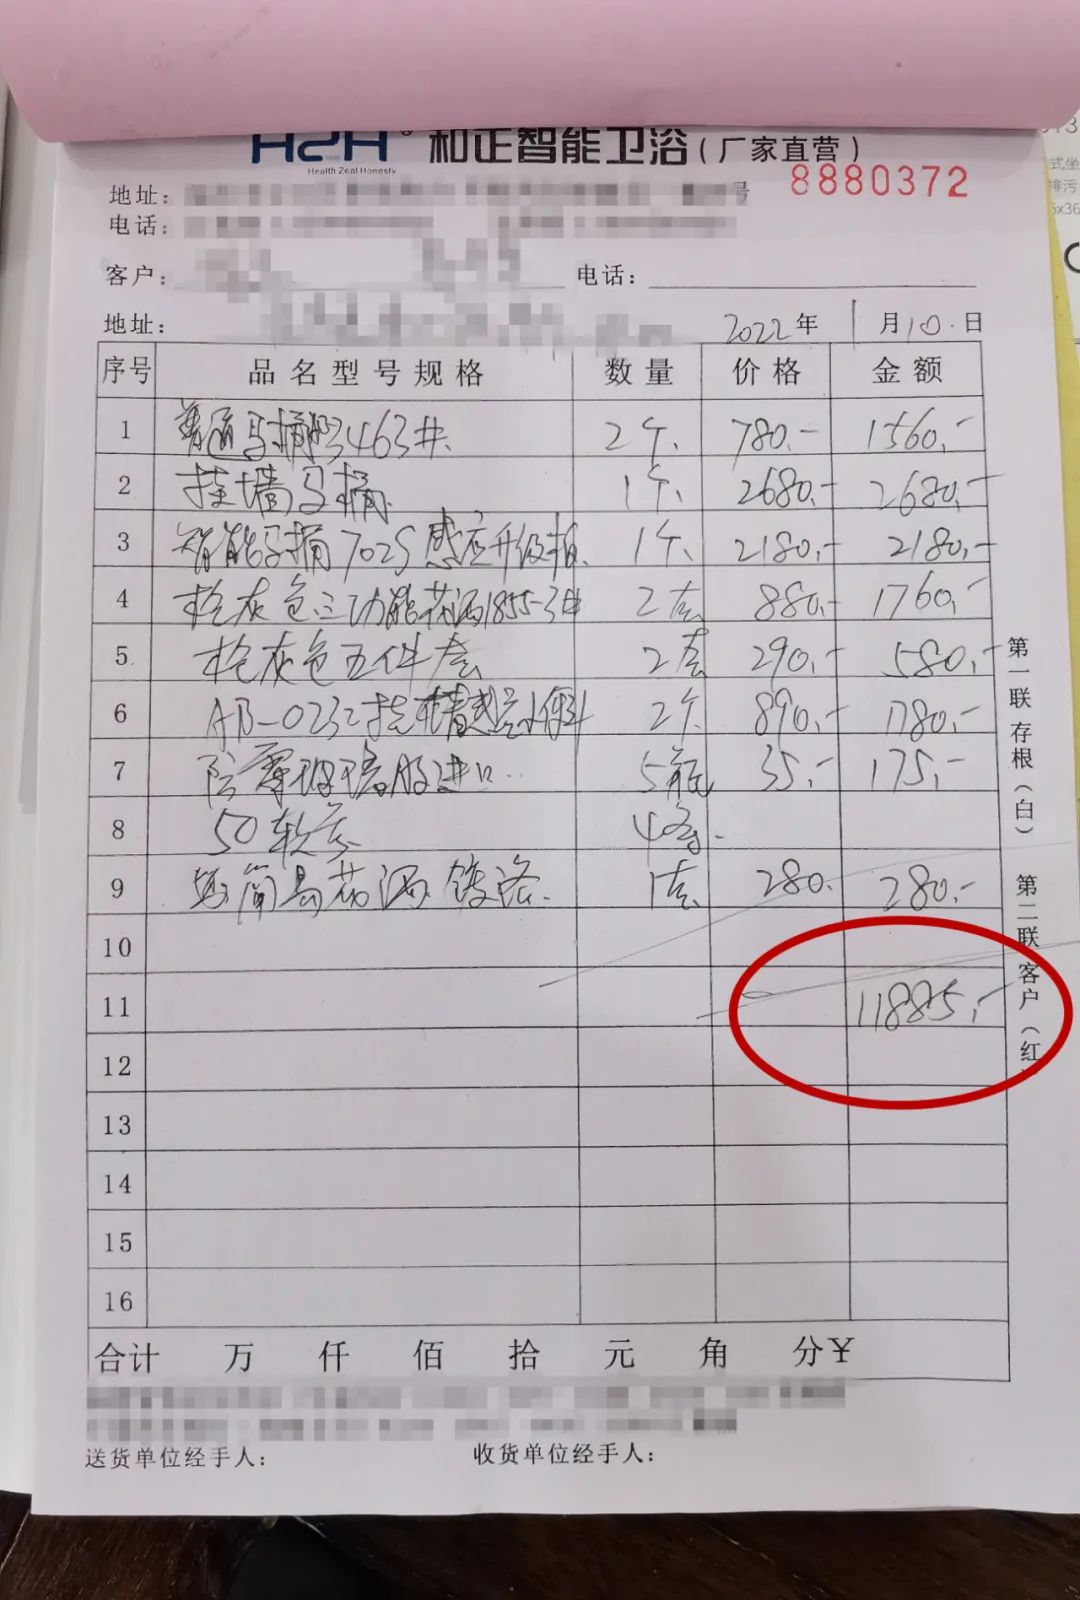 H2H® 和正智能卫浴（厂家直营）
Health Zeal Honesty
8880372
地址：
电话：
客户： 电话：
地址： 2022年 1月10.日
序号 品名型号规格 数量 价格 金额
1 普通马桶 3463# 2个. 780.- 1560.-
2 挂墙马桶. 1个. 2680.- 2680.-
3 智能马桶702S感应升级板. 1个. 2180.- 2180.-
4 枪灰色三功能花洒1855-3# 2套 880.- 1760.-
5 枪灰色五件套 2套 290.- 580.-
6 AB-0232挂墙感应小便斗 2个. 890.- 1780.-
7 防霉玻璃胶进口.. 5瓶 35.- 175.-
8 50软管. 4
9 简易花洒 镀洛. 1套 280. 280.-
10
11 11885.-
12
13
14
15
16
合计 万 仟 佰 拾 元 角 分¥
送货单位经手人： 收货单位经手人：
第一联存根（白） 第二联客户（红）
式坐
排污